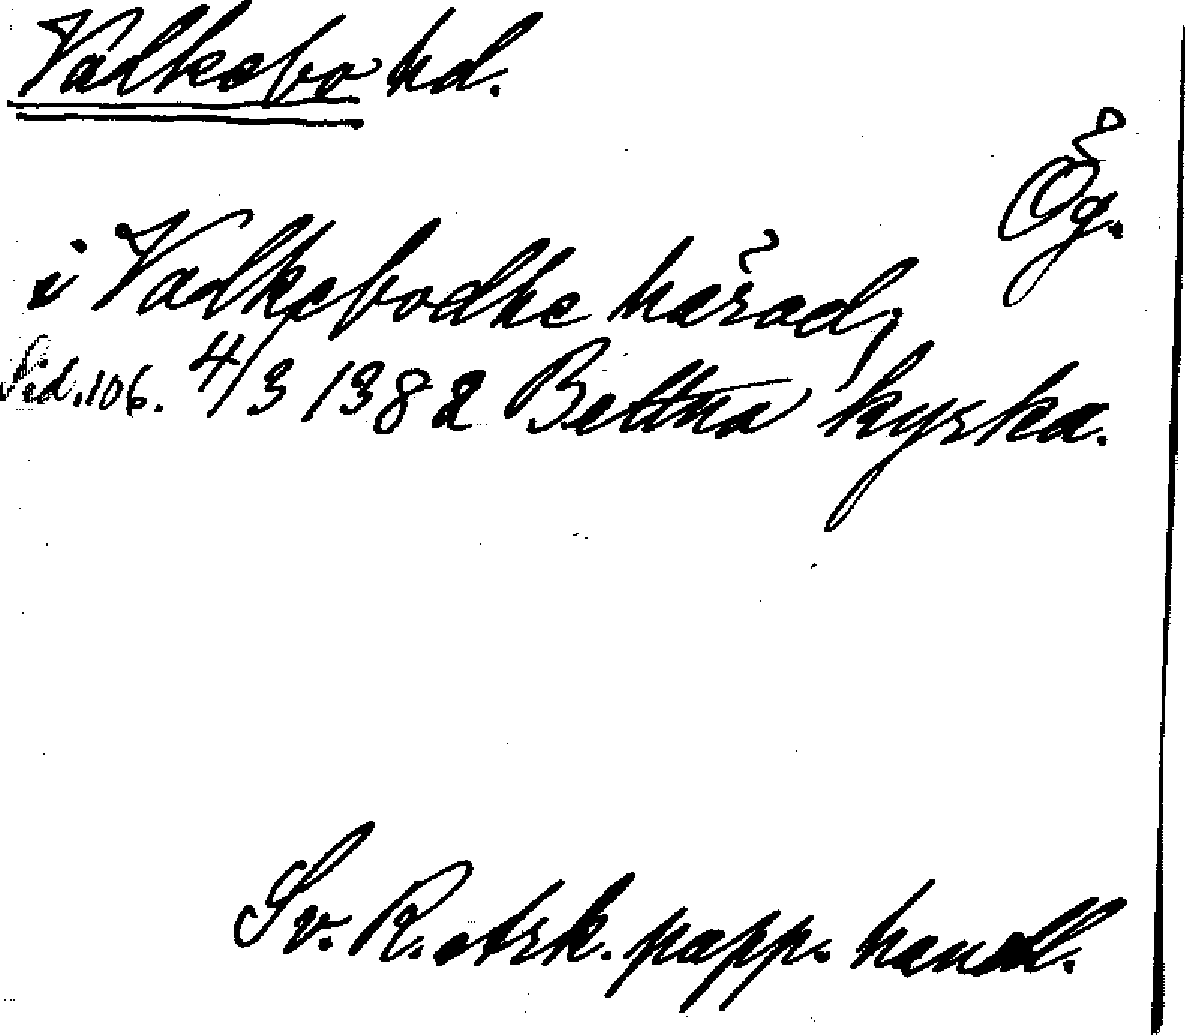 Valkebo hd.
Ög.
i Valkabodhe härad,
Sid. 106. 4/3 1382 Bettna kyrka.
Sv. R. ark. papp. handl.